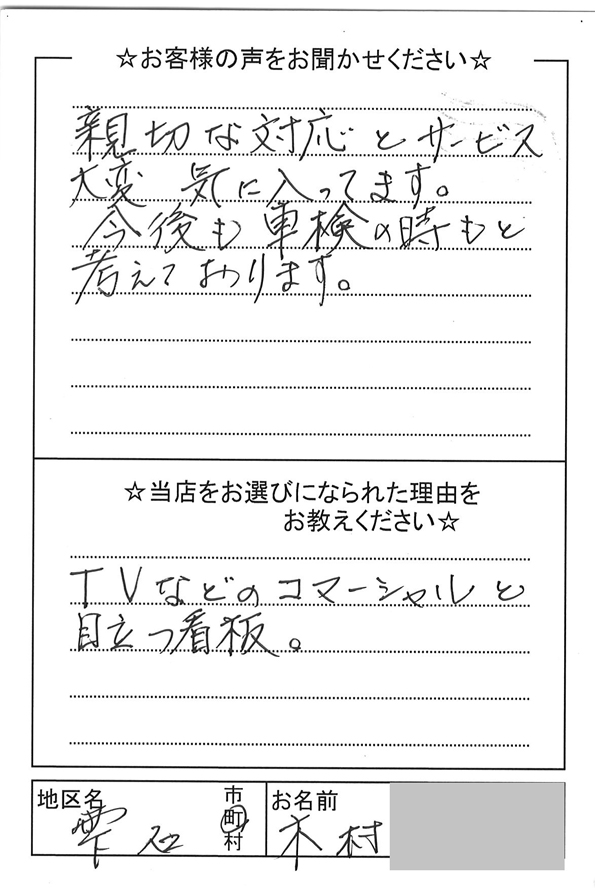 ☆お客様の声をお聞かせください☆
親切な対応とサービス
大変 気に入ってます。
今後も車検の時もと
考えております。
☆当店をお選びになられた理由を
お教えください☆
TVなどのコマーシャルと
目立つ看板。
地区名 雫石 市町村 お名前 木村